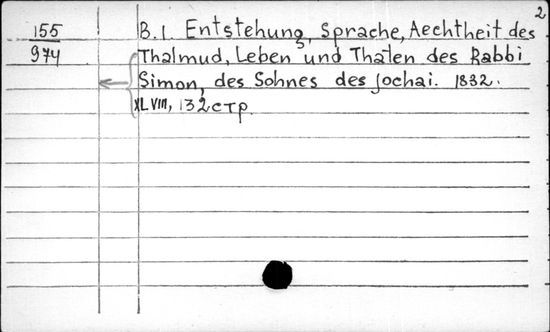 2
155
974
B.I. Entstehung, Sprache, Aechtheit des
Thalmud, Leben und Thaten des Rabbi
Simon, des Sohnes des Jochai. 1832.
XLVIII, 132 стр.